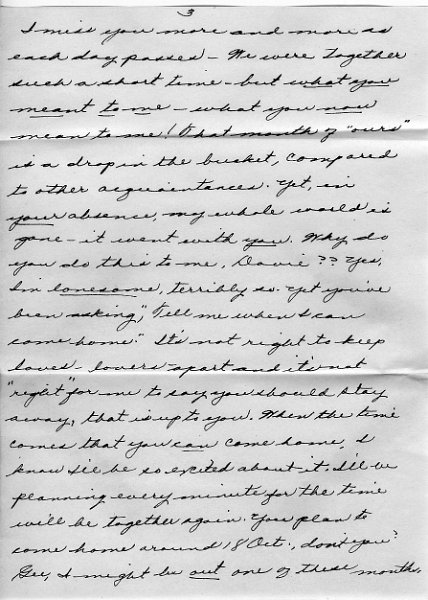 3
I miss you more and more as
each day passes - We were together
such a short time - but what you
meant to me - what you now
mean to me! That month of "ours"
is a drop in the bucket, compared
to other acquaintances. Yet, in
your absence, my whole world is
gone - it went with you. Why do
you do this to me, Davie?? Yes,
I'm lonesome, terribly so. Yet you've
been asking, "Tell me when I can
come home." It's not right to keep
loves - lovers - apart and it's not
"right" for me to say you should stay
away, that is up to you. When the time
comes that you can come home, I
know I'll be so excited about it. I'll be
planning every minute for the time
we'll be together again. You plan to
come home around 18 Oct., don't you?
Gee, I might be out one of these months.